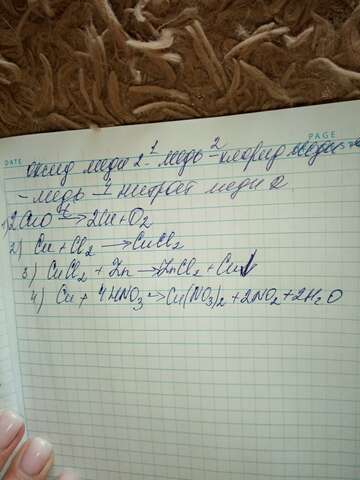 DATE
PAGE
оксид меди 2 -¹ медь -² хлорид меди
- медь -⁴ нитрат меди 2
1) 2CuO → 2Cu + O₂
2) Cu + Cl₂ → CuCl₂
3) CuCl₂ + Zn → ZnCl₂ + Cu↓
4) Cu + 4HNO₃ → Cu(NO₃)₂ + 2NO₂ + 2H₂O